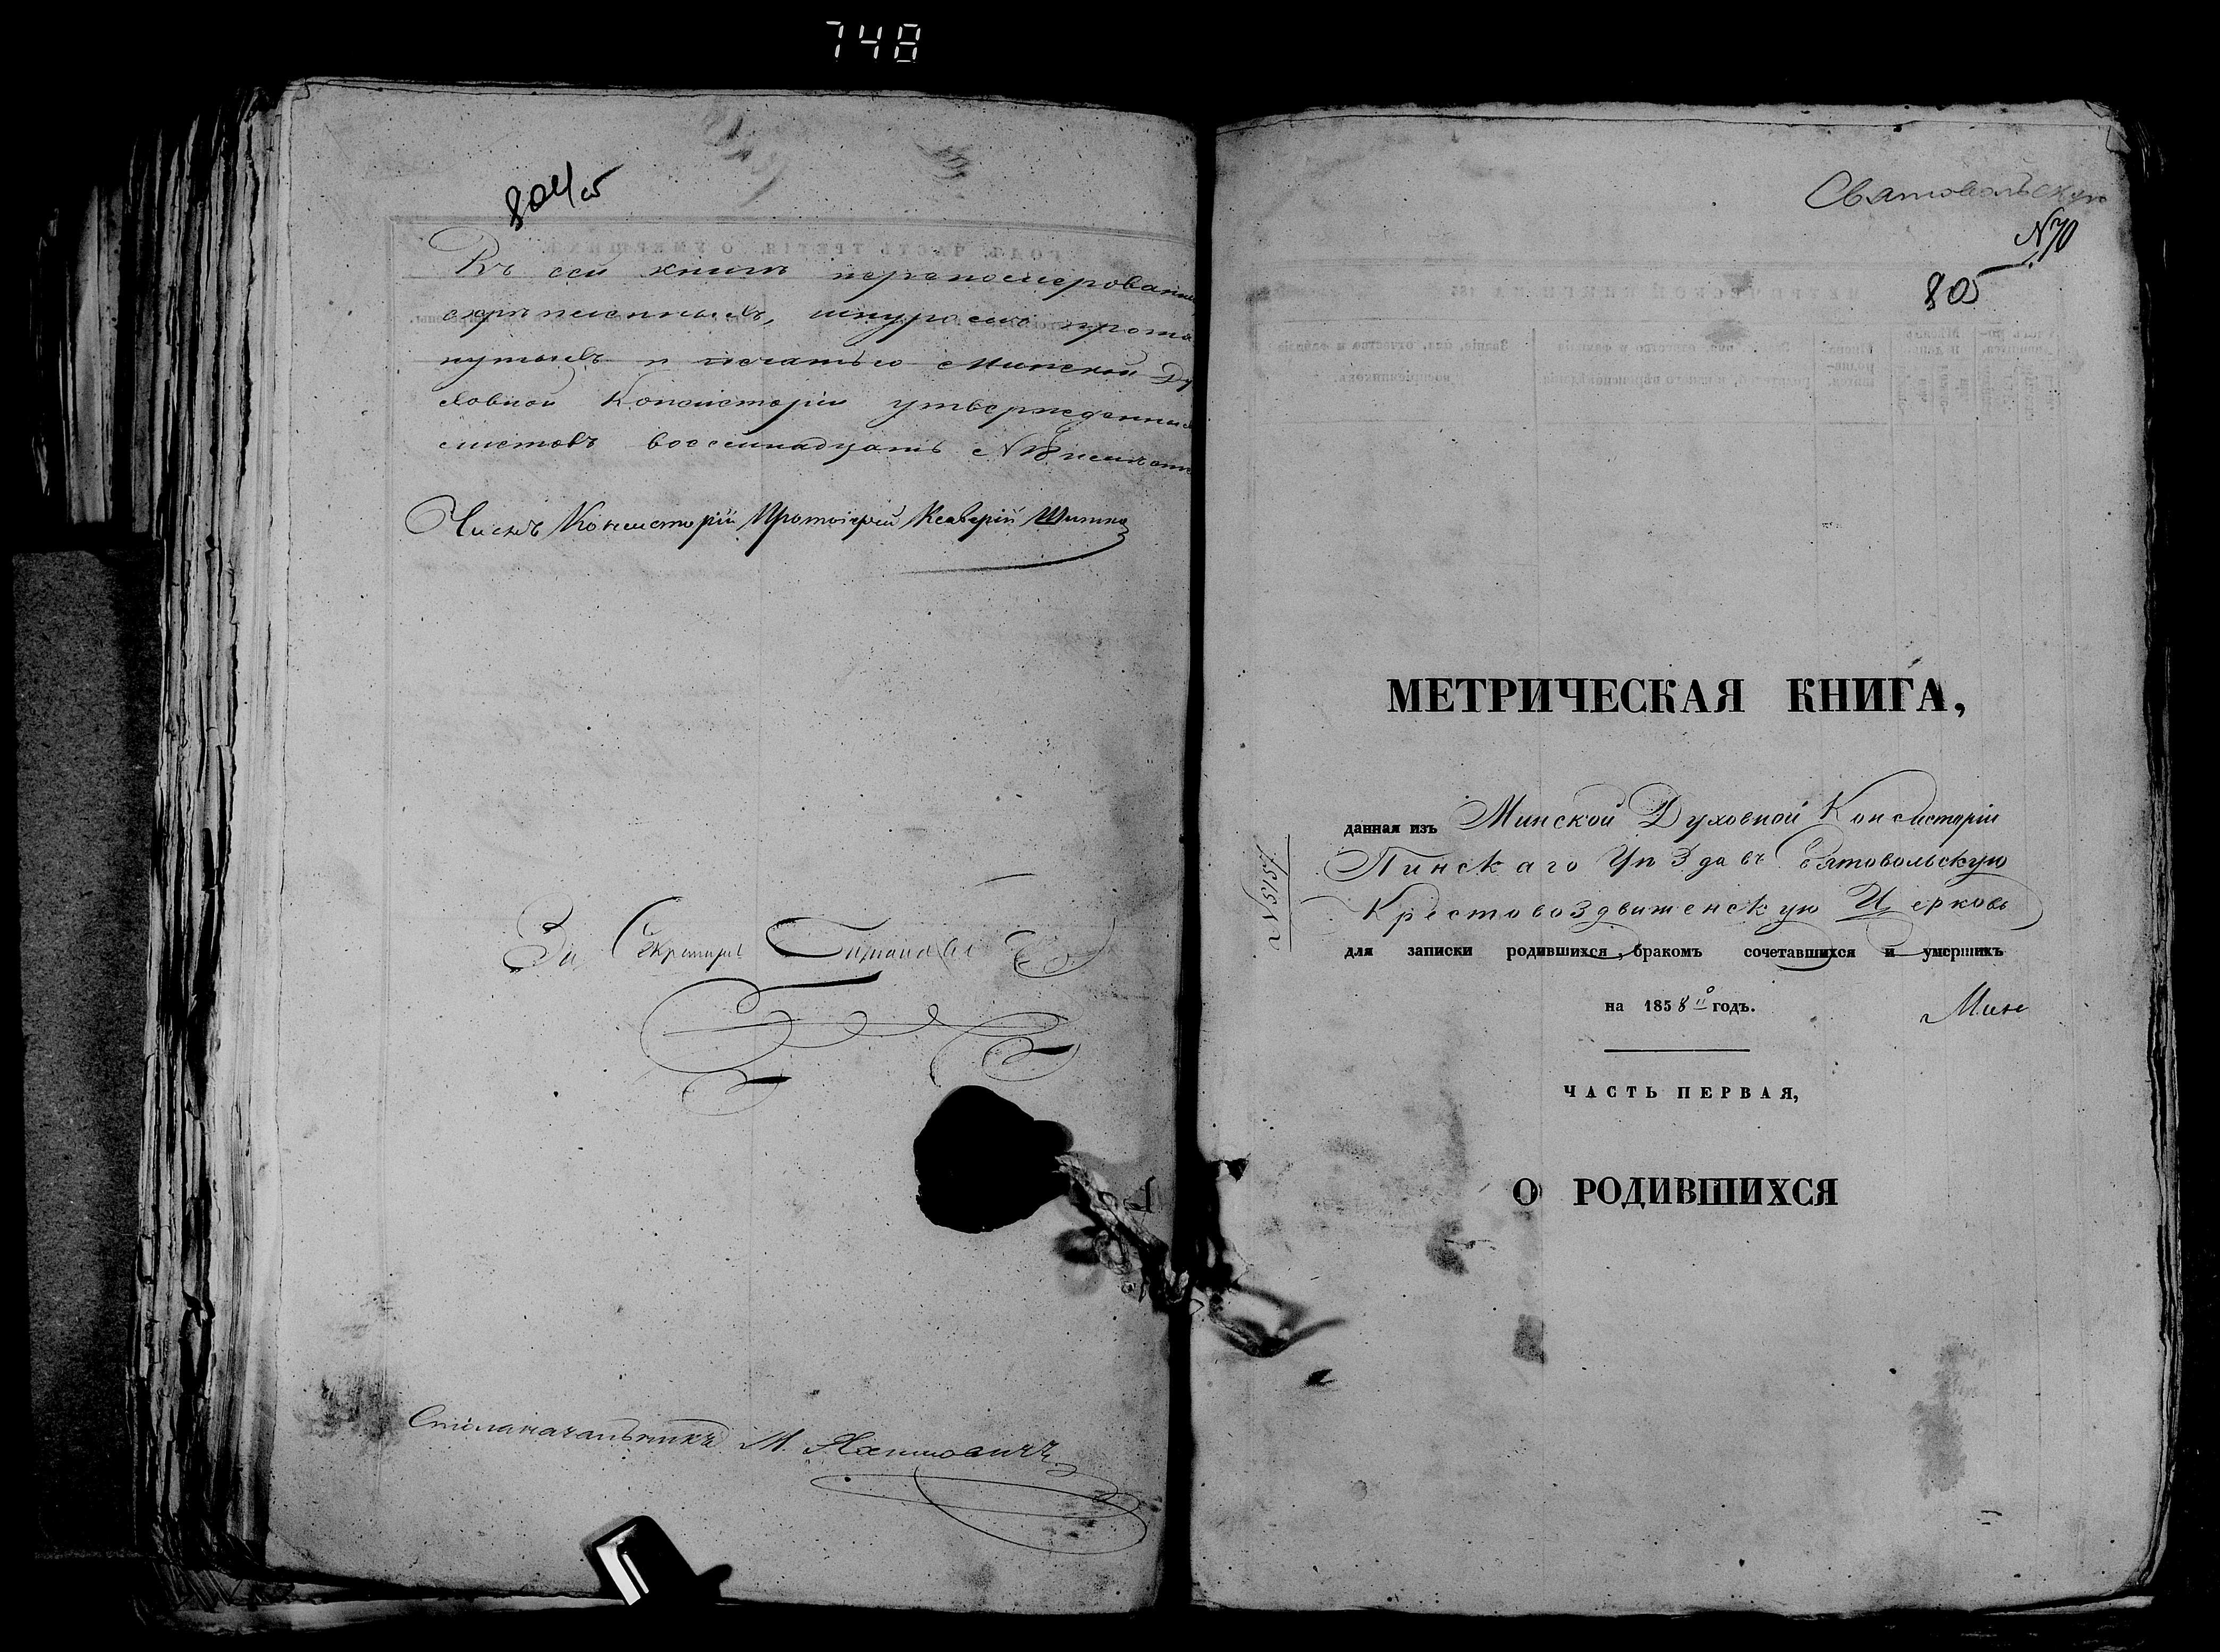 748
804об
Въ сей книгѣ переномерованныхъ
скрѣпленныхъ, шнуромъ прош
нутыхъ и печатью Минской Ду
ховной Консисторіи утвержденныхъ
листовъ восемнадцать №18
Членъ Консисторіи Протоіерей Ксаверій
За Секретаря
Столоначальникъ М.
Святовольскую
№70
805
МЕТРИЧЕСКАЯ КНИГА,
данная изъ Минской Духовной Консисторіи
Пинскаго Уѣзда въ Святовольскую
Крестовоздвиженскую Церковь
для записки родившихся, бракомъ сочетавшихся и умершихъ
на 1858й годъ.
Мин
№5157
ЧАСТЬ ПЕРВАЯ,
О РОДИВШИХСЯ